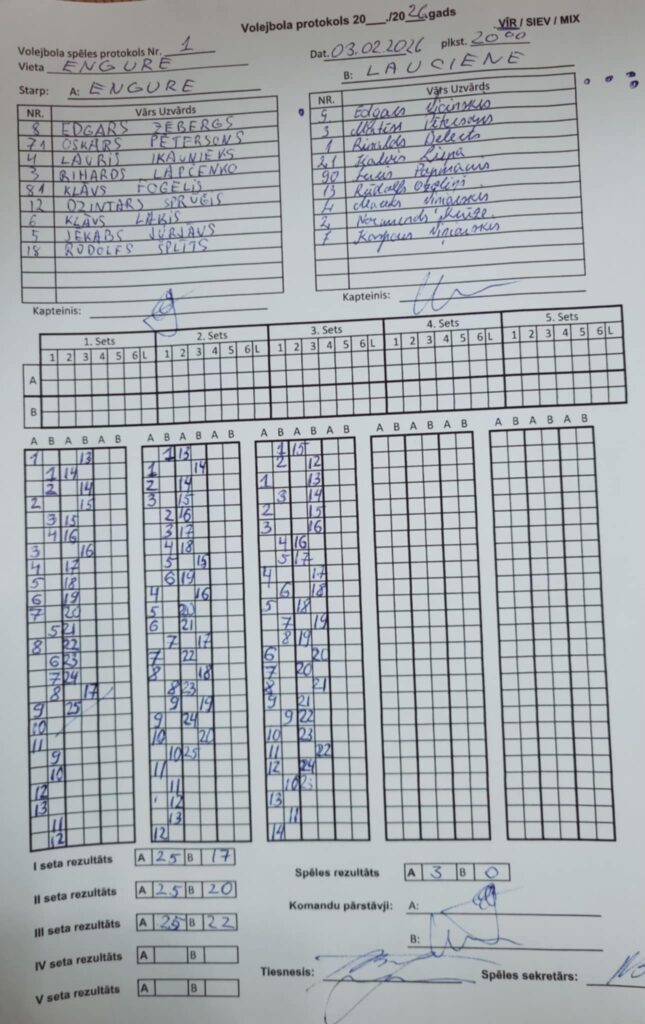 Volejbola protokols 20___./2026.gads
Volejbola spēles protokols Nr. 1
VĪR / SIEV / MIX
Dat. 03.02.2026 plkst. 20 00
Vieta ENGURE
Starp: A: ENGURE
B: LAUCIENE
NR. Vārs Uzvārds
8 EDGARS ZEBERGS
71 OSKARS PĒTERSONS
4 LAURIS IKAUNIEKS
3 RIHARDS LAPČENKO
81 KLĀVS FOGELIS
12 DZINTARS SPRUĢIS
6 KLĀVS LAĶIS
5 JĒKABS JURJAVS
18 RŪDOLFS SPLITS
Kapteinis:
NR. Vārs Uzvārds
9 Edgars
3 Pētersons
1 Rinalds
21 Kalvis Liepa
90
13 Rūdolfs
4
2 Normunds
7 Kaspars
Kapteinis:
1. Sets 2. Sets 3. Sets 4. Sets 5. Sets
1 2 3 4 5 6 L 1 2 3 4 5 6 L 1 2 3 4 5 6 L 1 2 3 4 5 6 L 1 2 3 4 5 6 L
A
B
A B A B A B A B A B A B A B A B A B A B A B A B A B A B A B
1 13 1 13 1 15
1 14 1 14 2 12
2 14 2 14 1 13
2 15 3 15 3 14
3 15 2 16 2 15
4 16 3 17 3 16
3 16 4 18 4 16
4 17 5 15 5 17
5 18 6 19 4 17
6 19 4 16 6 18
7 20 5 20 5 18
5 21 6 21 7 19
8 22 7 17 8 19
6 23 7 22 6 20
7 24 8 18 7 20
8 17 8 23 8 21
9 25 9 19 9 21
10 9 24 9 22
11 10 20 10 23
9 10 25 11 22
10 11 12 24
12 11 10
13 12 13
11 13 11
12 12 14
I seta rezultāts A 25 B 17
II seta rezultāts A 25 B 20
III seta rezultāts A 25 B 22
IV seta rezultāts A B
V seta rezultāts A B
Spēles rezultāts A 3 B 0
Komandu pārstāvji: A:
B:
Tiesnesis:
Spēles sekretārs: